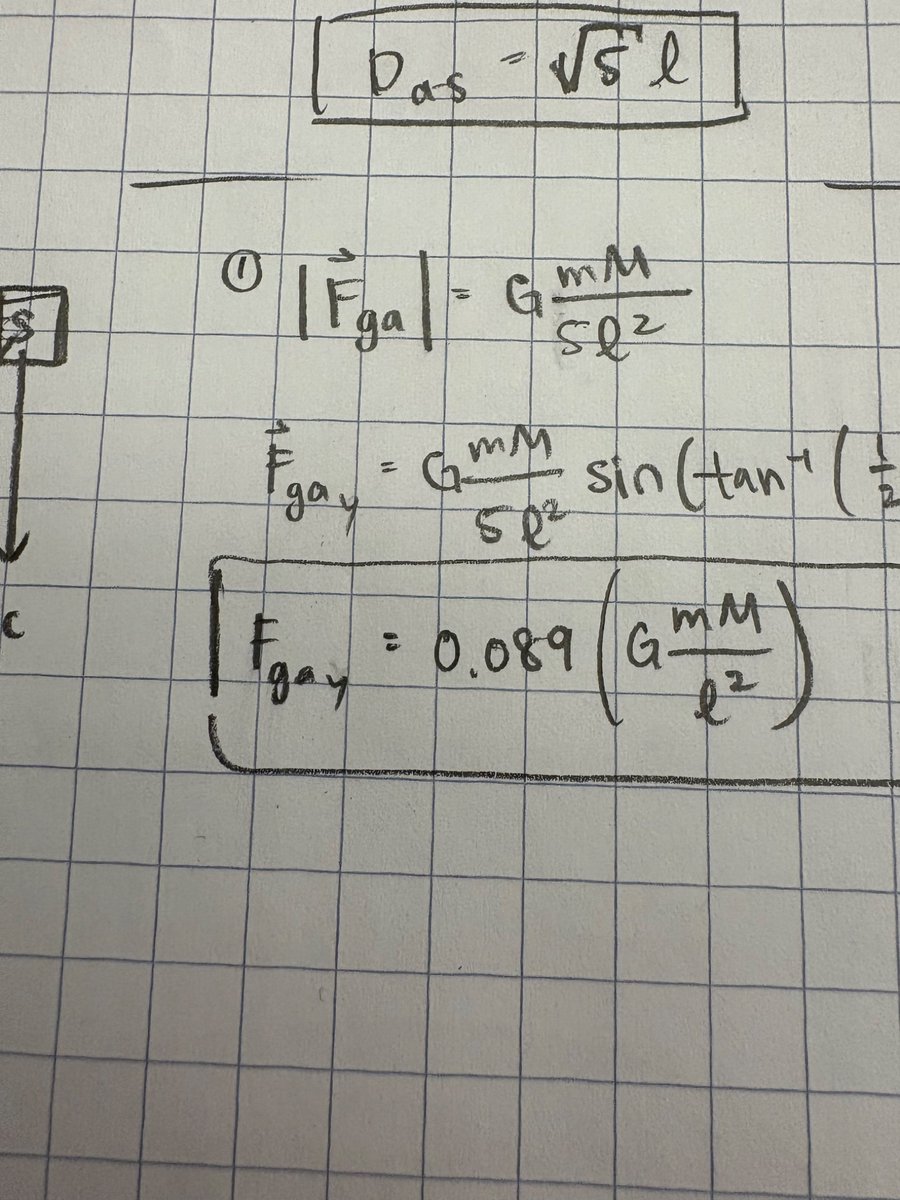 D_as = √5 ℓ
① |F⃗_ga| = G mM / 5ℓ²
S
F⃗_ga_y = G mM / 5ℓ² sin(tan⁻¹(1/2
c
F_ga_y = 0.089 (G mM / ℓ²)